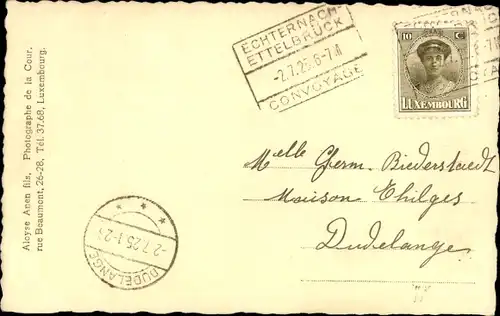 Aloyse Anen fils, Photographe de la Cour.
rue Beaumont, 26-28, Tél. 37.68, Luxembourg.
ECHTERNACH-
ETTELBRÜCK
-2.7.25.6-7.M
CONVOYAGE
10 C
LUXEMBOURG
Melle Germ. Biederstaedt
Maison Thilges
Dudelange
-2.7.25.1-2
DUDELANGE